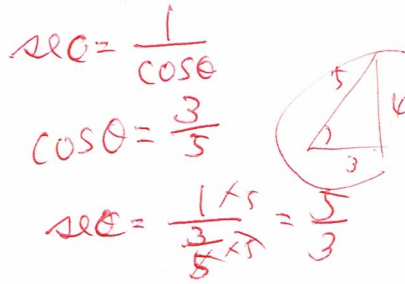 secθ = 1/cosθ
cosθ = 3/5
5
4
3
secθ = 1×5 / (3/5 ×5) = 5/3